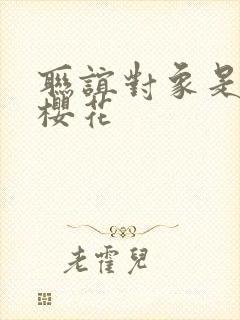 聯誼對象是
櫻花
老霍兒